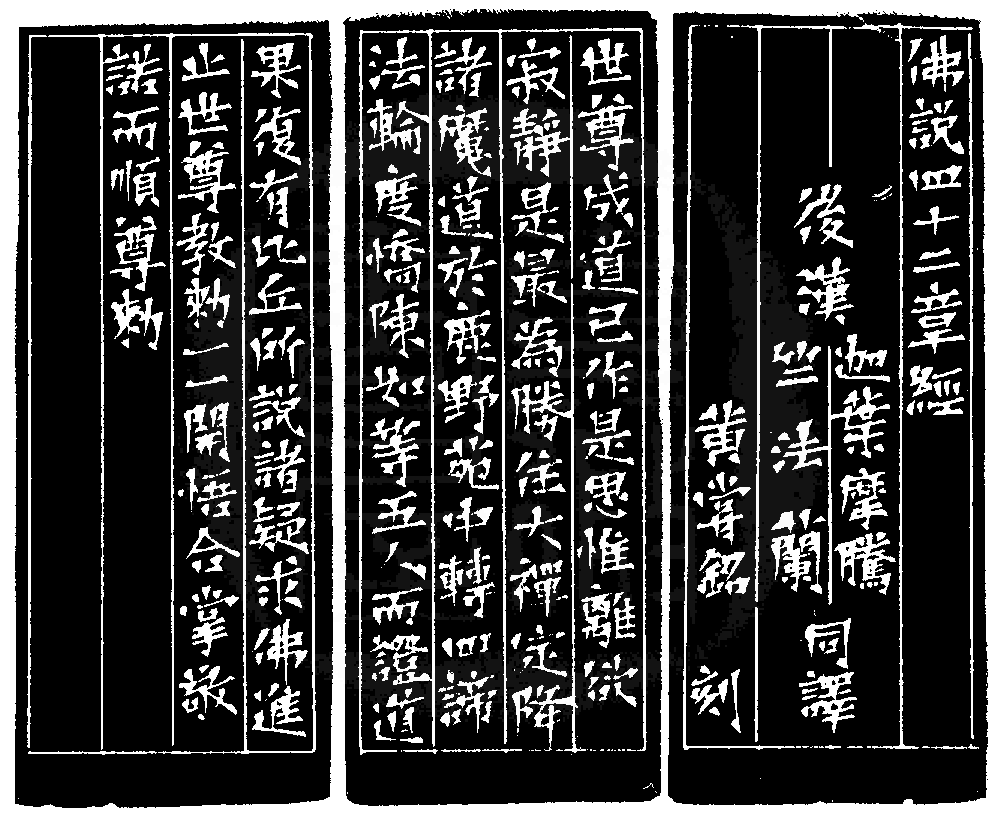 佛説四十二章經
後漢
迦葉摩騰
竺法蘭
同譯
黄嘗銘 刻
世尊成道已作是思惟離欲
寂靜是最為勝住大禪定降
諸魔道於鹿野苑中轉四諦
法輪度憍陳如等五人而證道
果復有比丘所説諸疑求佛進
止世尊教勅一一開悟合掌敬
諾而順尊勅